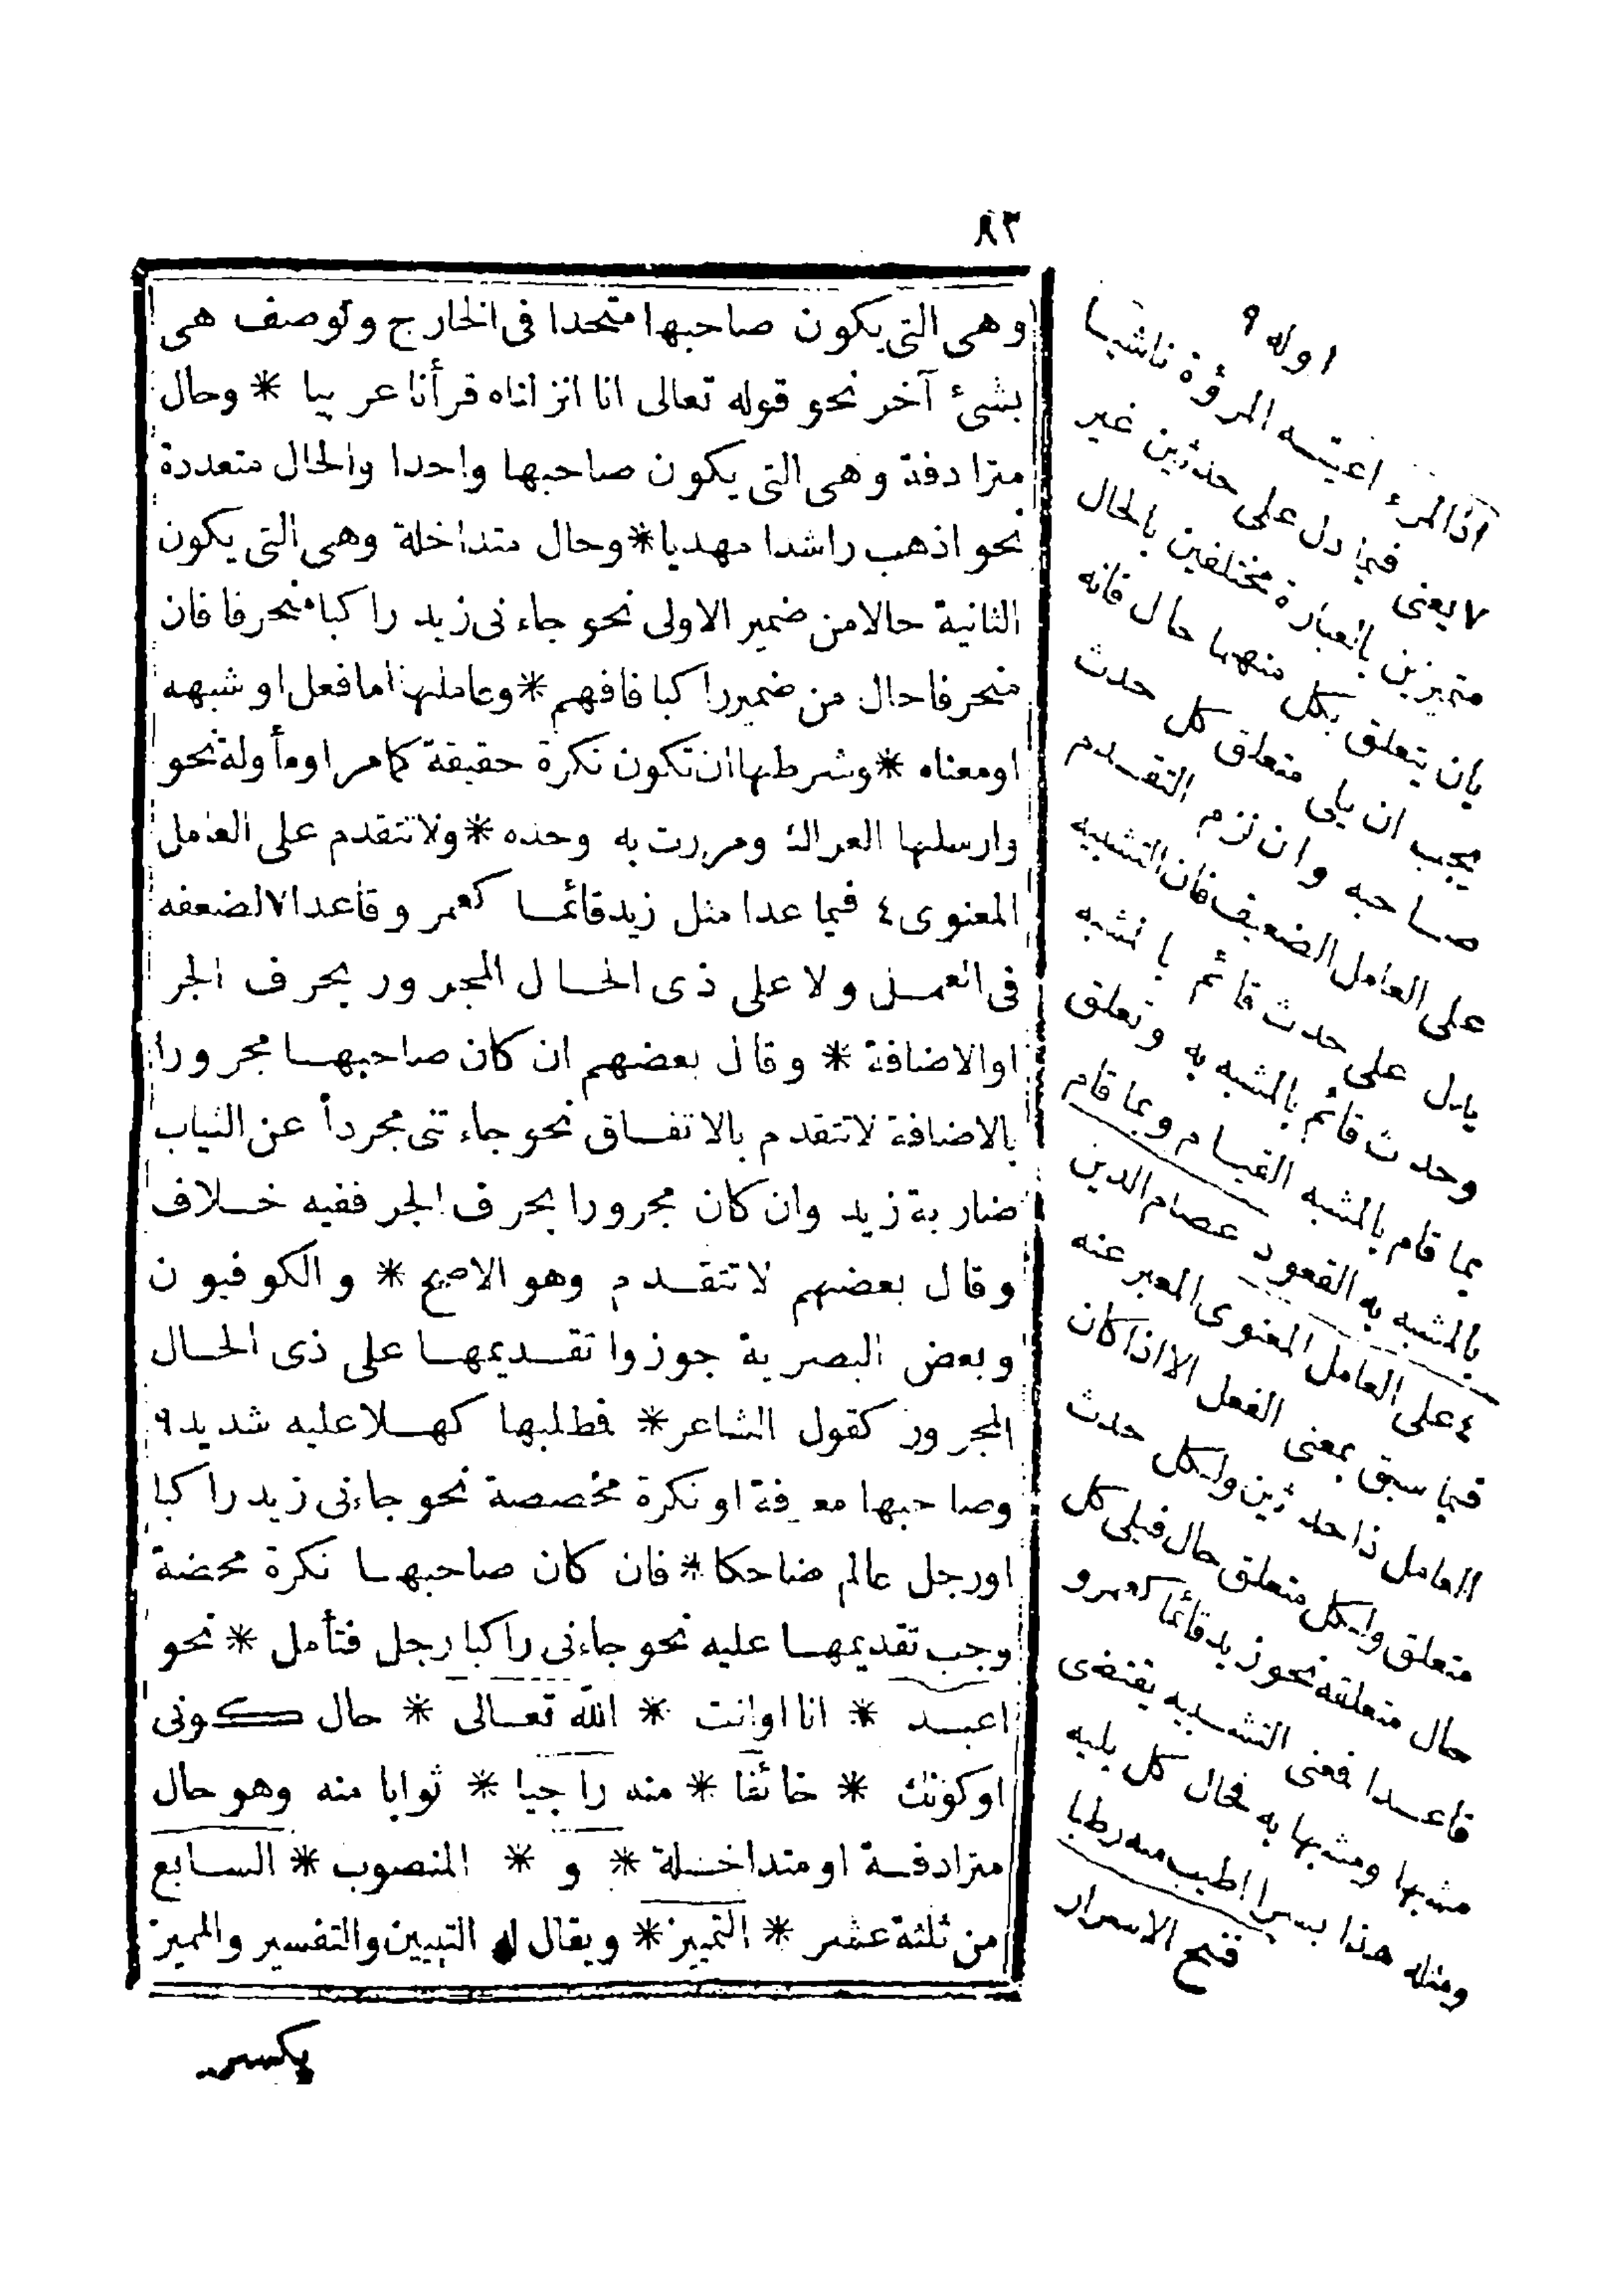 ٨٣
وهى التى يكون صاحبها متحدا فى الخارج وتوصف هى
بشئ آخر نحو قوله تعالى انا انزلناه قرأنا عربيا * وحال
مترادفة وهى التى يكون صاحبها واحدا والحال متعددة
نحو اذهب راشدا مهديا * وحال متداخلة وهى التى يكون
الثانية حالا من ضمير الاولى نحو جاءنى زيد راكبا منحرفا فان
منحرفا حال من ضمير راكبا فافهم * وعاملها اما فعل او شبهه
اومعناه * وشرطها ان تكون نكرة حقيقة كمامر اومأولة نحو
وارسلها العراك ومررت به وحده * ولا تتقدم على العامل
المعنوى ٤ فيما عدا مثل زيد قائما كعمر و قاعدا ٧ لضعفه
فى العمل ولا على ذى الحال المجرور بحرف الجر
اوالاضافة * وقال بعضهم ان كان صاحبها مجرورا
بالاضافة لاتتقدم بالاتفاق نحو جاءتنى مجرداً عن الثياب
ضاربة زيد وان كان مجرورا بحرف الجر ففيه خلاف
وقال بعضهم لاتتقدم وهو الاصح * والكوفيون
وبعض البصرية جوزوا تقديمها على ذى الحال
المجرور كقول الشاعر * فطلبها كهلا عليه شديد ٩
وصاحبها معرفة او نكرة مخصصة نحو جاءنى زيد راكبا
اورجل عالم ضاحكا * فان كان صاحبها نكرة محضة
وجب تقديمها عليه نحو جاءنى راكبا رجل فتأمل * نحو
اعبد * انا اوانت * الله تعالى * حال كونى
اوكونك * خائفا * منه راجيا * ثوابا منه وهو حال
مترادفة او متداخلة * و * المنصوب * السابع
من ثلثة عشر * التمييز * ويقال له التبيين والتفسير والمميز
يكسر
٩ اوله
اذا المرء اعيته المروءة ناشيا
٧ يعنى فيما دل على حدثين غير
متميزين بالعبارة مختلفين بالحال
بان يتعلق بكل منهما حال فانه
يجب ان يلى متعلق كل حدث
صاحبه وان لزم التقدم
على العامل الضعيف فان التشبيه
يدل على حدث قائم بالمشبه
وحدث قائم بالمشبه به وتعلق
بما قام بالمشبه القيام وبما قام
بالمشبه به القعود عصام الدين
٤ على العامل المعنوى المعبر عنه
فيما سبق بمعنى الفعل الا اذا كان
العامل ذا حدثين ولكل حدث
متعلق ولكل متعلق حال فيلى كل
حال متعلقه نحو زيد قائما كعمرو
قاعدا فمعنى التشبيه يقتضى
مشبها ومشبها به فحال كل يليه
ومثله هذا بسرا اطيب منه رطبا
فتح الاسرار